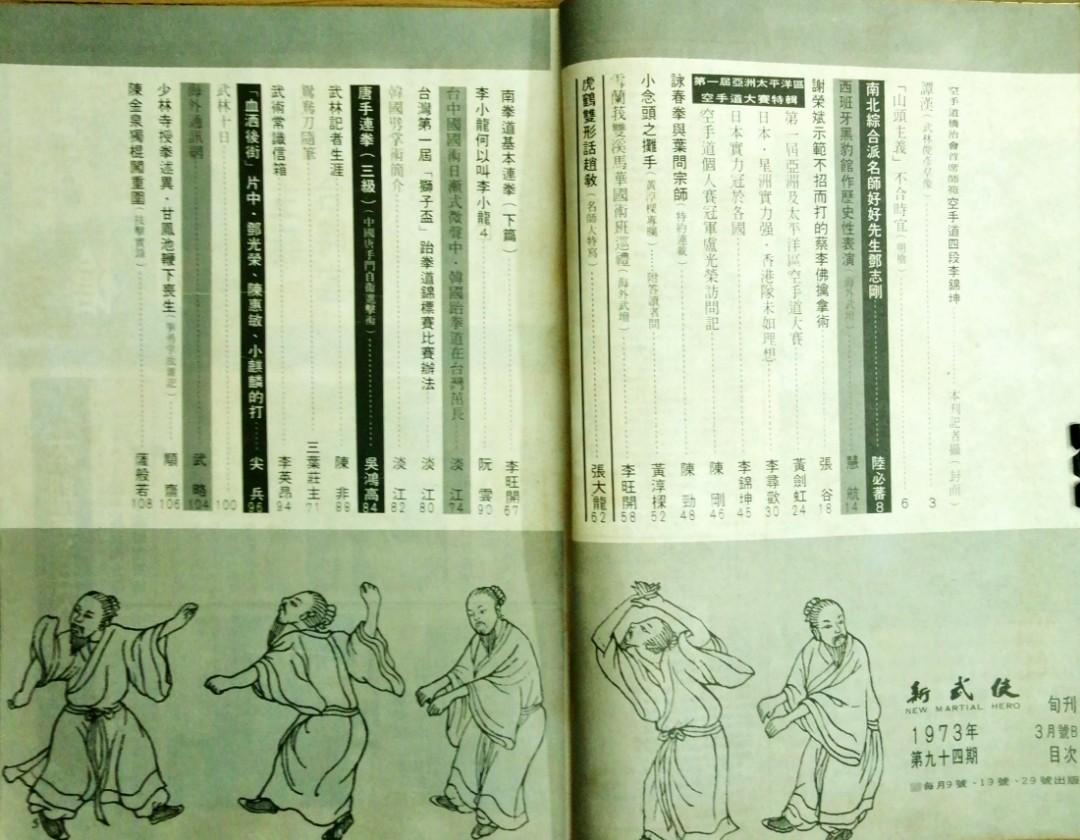 空手道橋治會首席師範空手道四段李錦坤 本刊記者攝(封面)
譚漢(武林俊彥羣像) 3
「山頭主義」不合時宜(明槍) 6
南北綜合派名師好好先生鄧志剛 陸必蕃 8
西班牙黑豹館作歷史性表演(海外武壇) 慧航 14
謝榮斌示範不招而打的蔡李佛擒拿術 張谷 18
第一屆亞洲太平洋區
空手道大賽特輯
第一屆亞洲及太平洋區空手道大賽 黃劍虹 24
日本·星洲實力强·香港隊未如理想 李尋歡 30
日本實力冠於各國 李錦坤 45
空手道個人賽冠軍盧光榮訪問記 陳剛 46
詠春拳與葉問宗師(特約連載) 陳勁 48
小念頭之攤手(黃淳樑專欄)……附答讀者問 黃淳樑 52
雪蘭莪雙溪馬華國術班巡禮(海外武壇) 李旺開 58
虎鶴雙形話趙教(名師大特寫) 張大龍 62
新武俠 旬刊
NEW MARTIAL HERO
1973年 3月號B
第九十四期 目次
每月9號·19號·29號出版
南拳道基本連拳(下篇) 李旺開 67
李小龍何以叫李小龍4 阮雲 90
台中國國術日漸式微聲中·韓國跆拳道在台灣茁長 淡江 74
台灣第一屆「獅子盃」跆拳道錦標賽比賽辦法 淡江 80
韓國劈掌術簡介 淡江 82
唐手連拳(三級)(中國唐手門自衞進擊術) 吳鴻高 84
武林記者生涯 陳非 88
鴛鴦刀隨筆 三葉莊主 71
武術常識信箱 李英昂 94
「血洒後街」片中·鄧光榮、陳惠敏、小麒麟的打 尖兵 96
武林十日 100
海外通訊網 武略 104
少林寺授拳述異·甘鳳池鞭下喪生 順齋 106
陳金泉獨棍闖重圍(技擊實錄) 薩般若 108
5